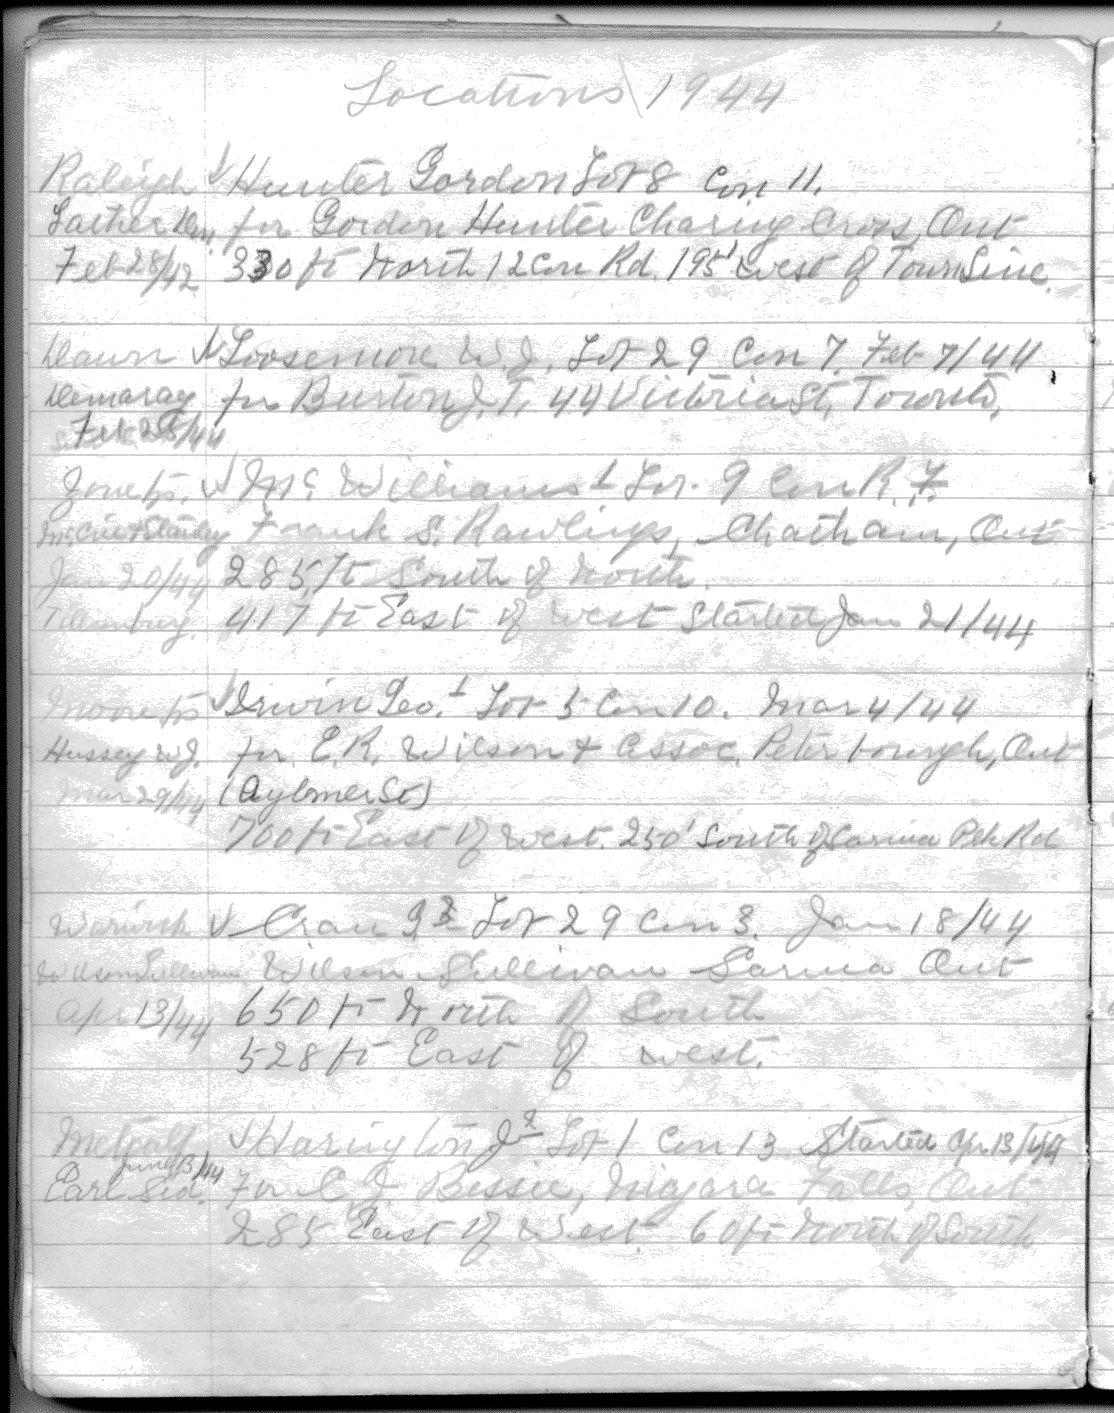 Locations 1944
Raleigh √ Hunter Gordon Lot 8 Con 11.
for Gordon Hunter Charing Cross, Ont
Feb 28/42 330 ft North 12 Con Rd. 195' West of Town Line.
Dawn √ Loosemore W.J. Lot 29 Con 7. Feb 7/44
Demaray for Burton J.T. 44 Victoria St, Toronto,
Feb 28/44
Zone tp. √ Mc Williams 1 Lot 9 Con R. 7.
Frank S. Rawlings, Chatham, Ont
Jan 20/44 285 ft South of North.
Tillsonburg. 417 ft East of West Started Jan 21/44
Moore tp √ Irwin Geo. 1 Lot 5 Con 10. Mar 4/44
Hussey W.J. for E.R. Wilson & Assoc. Peterborough, Ont
Mar 29/44 (Aylmer St)
700 ft East of West. 250' South of Sarnia Rd
Warwick √ Lot 29 Con 3. Jan 18/44
Wilson Sullivan Wilson Sullivan Sarnia Ont
Apr 13/44 650 ft North of South
528 ft East of West.
Metcalf √ Harington J 2 Lot 1 Con 13 Started Apr 13/44
June 13/44
Earl Sid. For C.J. Niagara Falls, Ont.
285 East of West 60 ft North of South